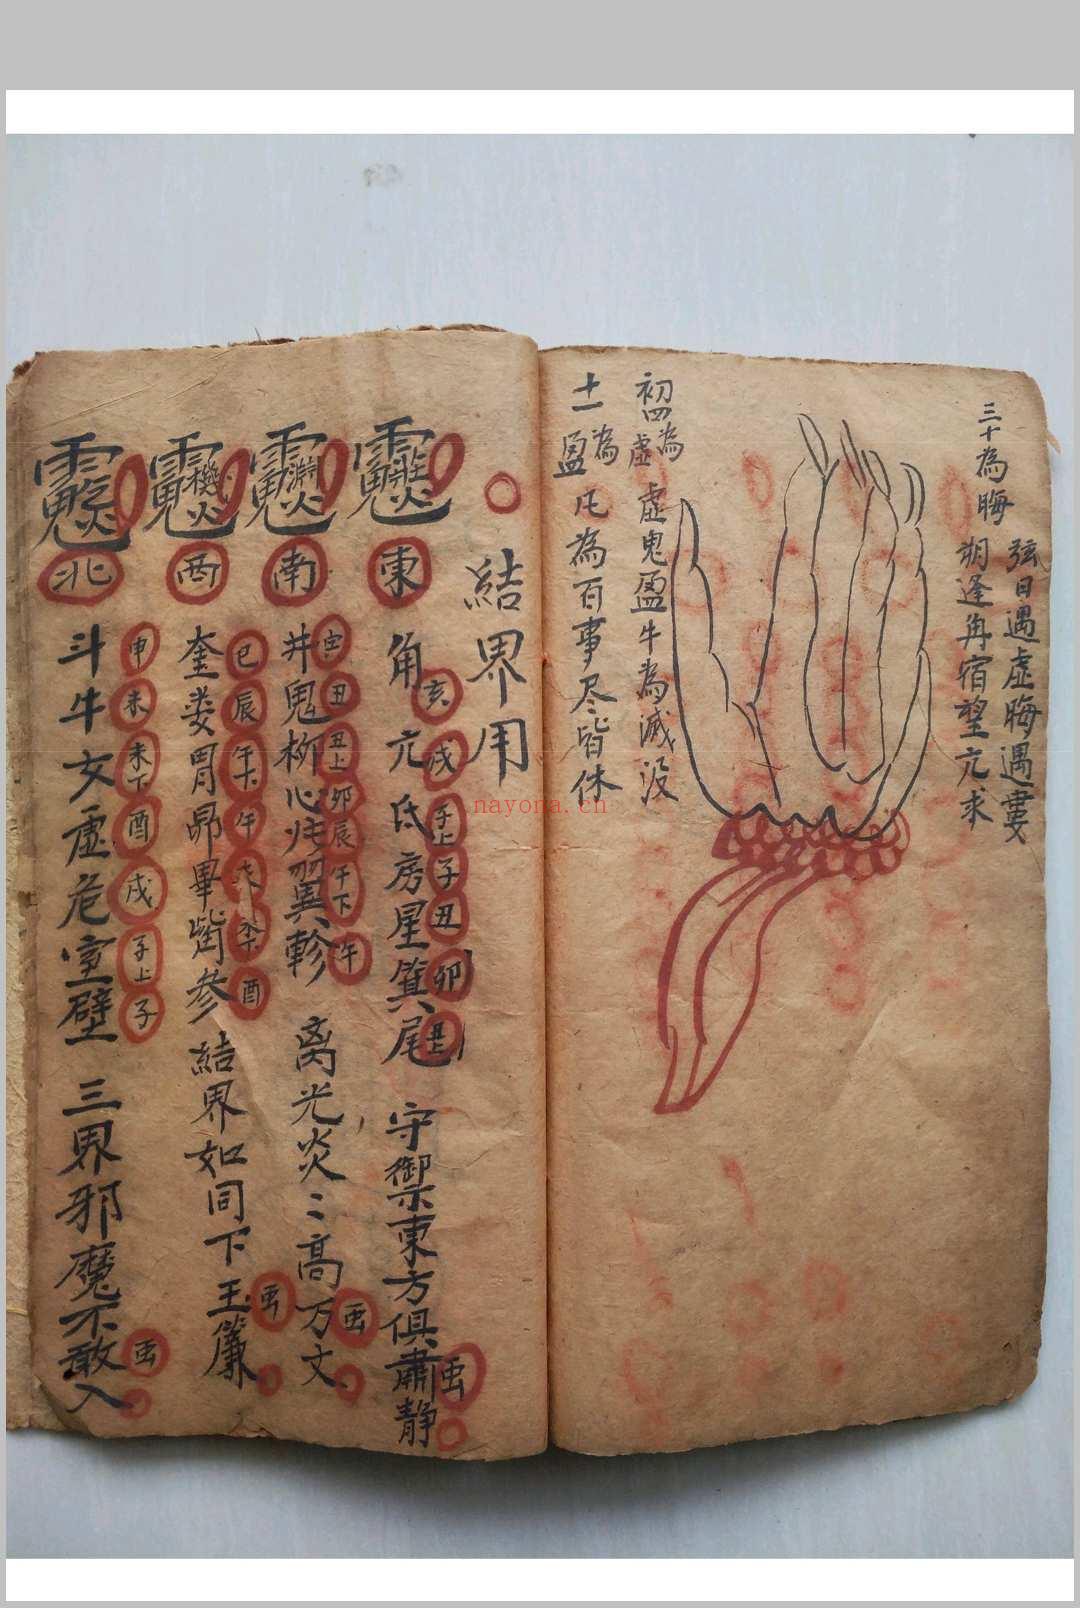 三十為晦
弦日遇虛晦遇婁
朔逢角宿望亢求
初四為虛
虛鬼盈牛為滅沒
十一為盈
凡為百事尽皆休
結界用
東
角亢氐房星箕尾
亥戌子上子丑卯丑上
守禦東方俱肅静
南
井鬼柳心
翼軫
丑丑上卯辰午下午
离光炎〻高万丈
西
奎娄胃昴畢觜參
巳辰午下午
酉
結界如同下玉簾
北
斗牛女虛危室壁
申未未下酉戌子上子
三界邪魔不敢入
nayona.cn